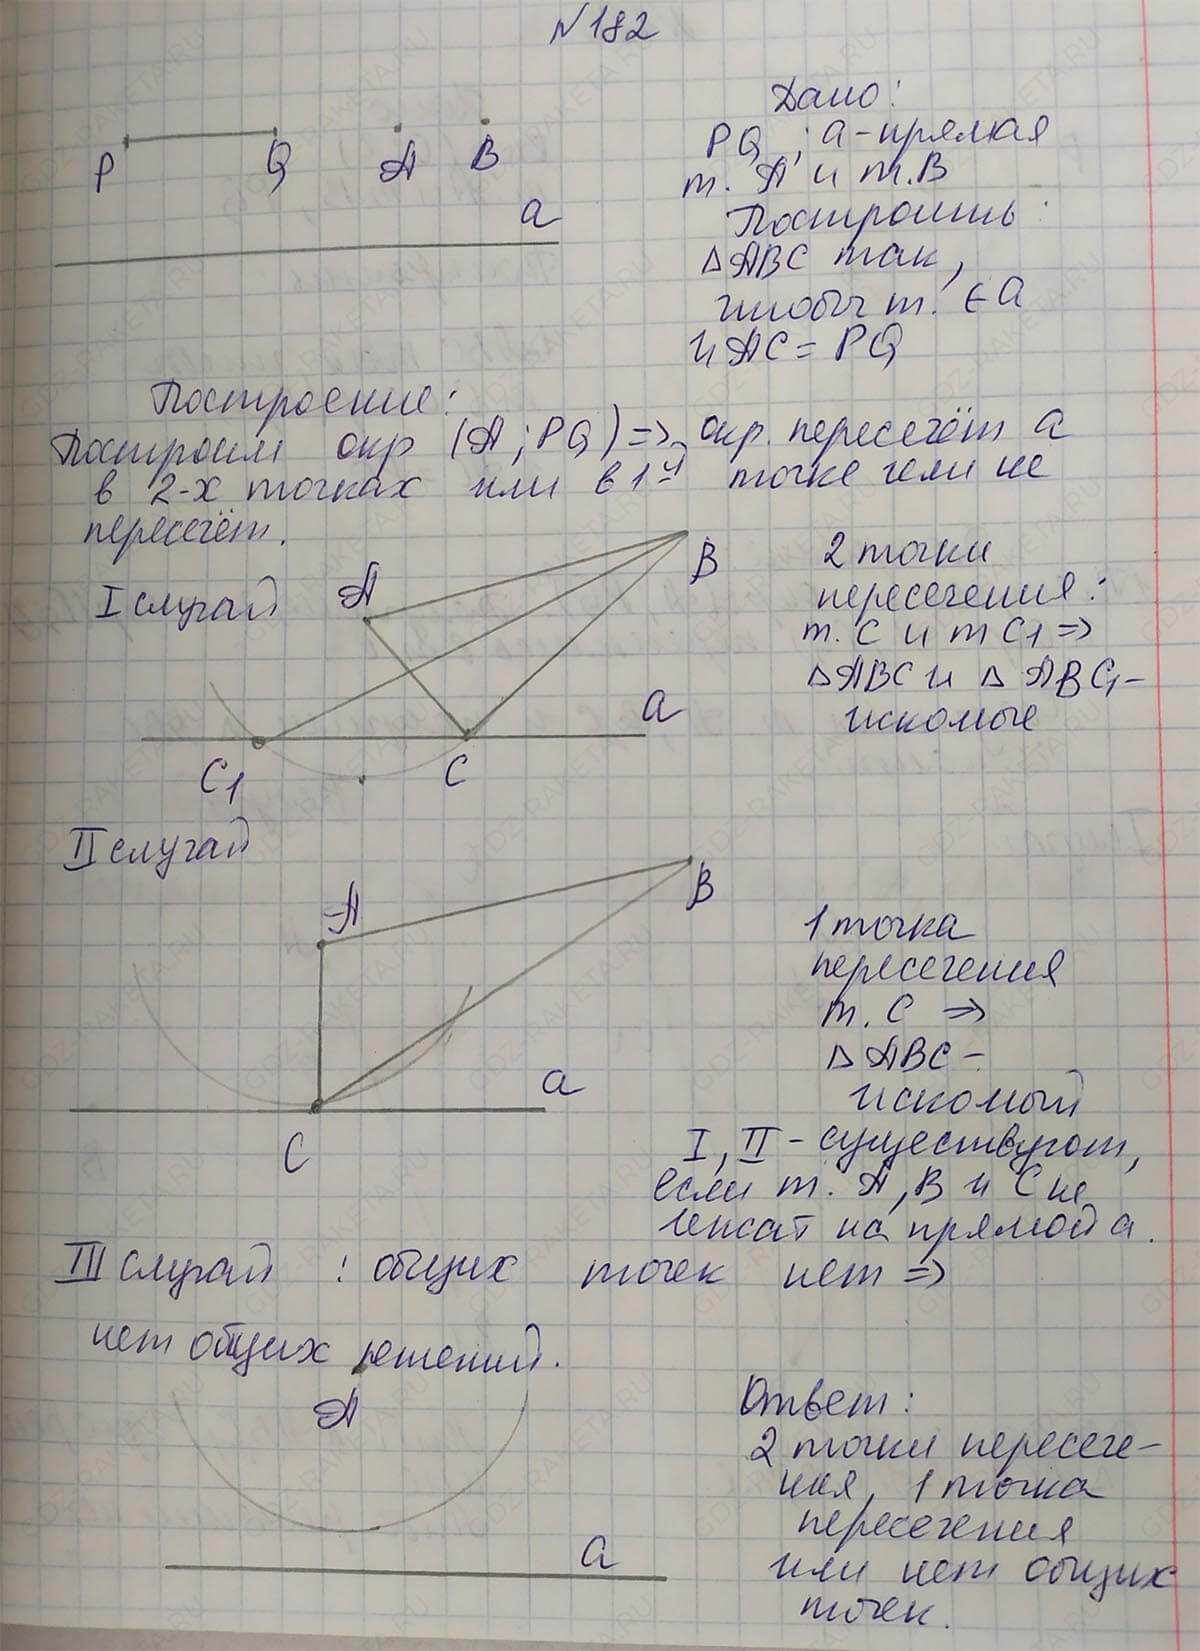 N182
P Q A B
a
Дано:
PQ ; a-прямая
т. A и т.B
Построить:
△ABC так,
чтобы т. ∈ a
и AC = PQ
Построение:
Построим окр (A;PQ)=> окр. пересечёт a
в 2-х точках или в 1-й точке или не
пересечёт.
I случай
A
B
a
C1
C
2 точки
пересечения:
т. C и т C1 =>
△ABC и △ ABC1-
искомые
II случай
A
B
a
C
1 точка
пересечения
т. C =>
△ ABC -
искомый
I, II - существуют,
если т. A, B и C не
лежат на прямой a.
III случай : общих точек нет =>
нет общих решений.
A
a
Ответ:
2 точки пересече-
ния, 1 точка
пересечения
или нет общих
точек.